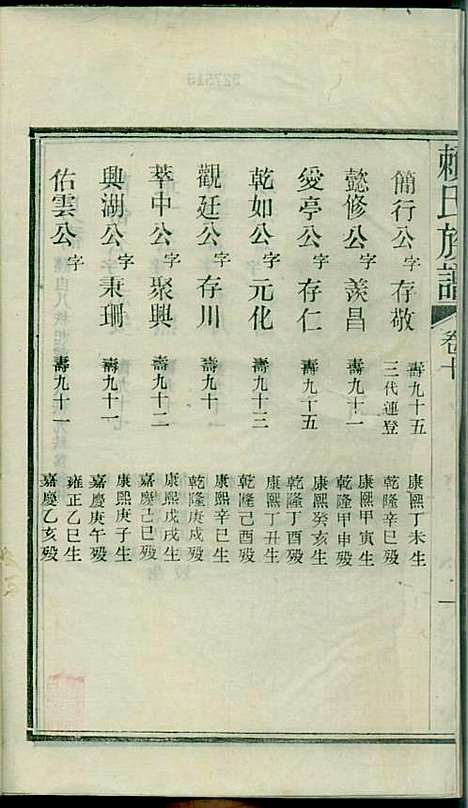 賴氏族譜 卷十 一
簡行公 字 存敬 壽九十五 三代連登 康熙丁未生 乾隆辛巳歿
懿修公 字 羨昌 壽九十一 康熙甲寅生 乾隆甲申歿
愛亭公 字 存仁 壽九十五 康熙癸亥生 乾隆丁酉歿
乾如公 字 元化 壽九十三 康熙丁丑生 乾隆己酉歿
觀廷公 字 存川 壽九十 康熙辛巳生 乾隆庚戌歿
萃中公 字 聚興 壽九十二 康熙戊戌生 嘉慶己巳歿
與湖公 字 秉珊 壽九十一 康熙庚子生 嘉慶庚午歿
佑雲公 字 壽九十一 雍正乙巳生 嘉慶乙亥歿